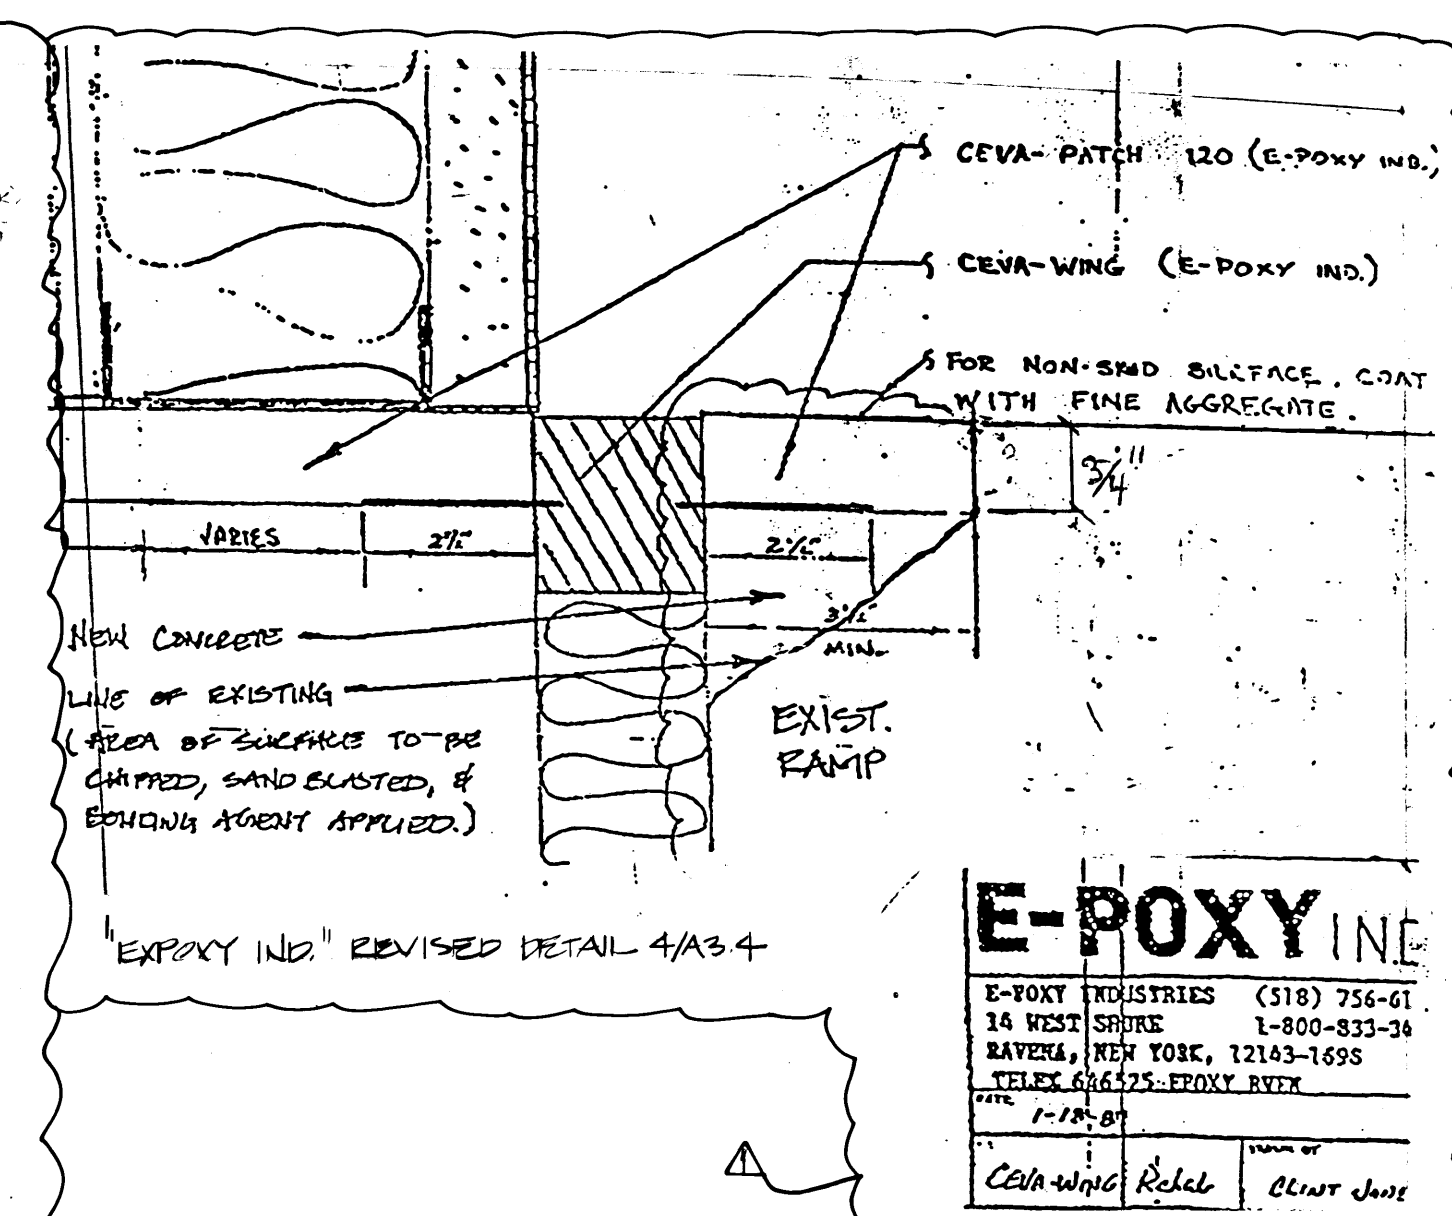 CEVA-PATCH 120 (E-POXY IND.)
CEVA-WING (E-POXY IND.)
FOR NON-SKID SURFACE, COAT
WITH FINE AGGREGATE.
3/4"
VARIES
2 1/2"
2 1/2"
NEW CONCRETE
3 1/2"
MIN.
LINE OF EXISTING
(AREA OF SURFACE TO BE
CHIPPED, SANDBLASTED, &
BONDING AGENT APPLIED.)
EXIST.
RAMP
"EXPOXY IND." REVISED DETAIL 4/A3.4
E-POXY IND
E-POXY INDUSTRIES (518) 756-61
14 WEST SHORE 1-800-833-34
RAVENA, NEW YORK, 12143-1695
TELEX 646525-EPOXY RVEN
DATE
1-18-87
CEVA-WING Rehab
DRAWN BY
CLINT
1